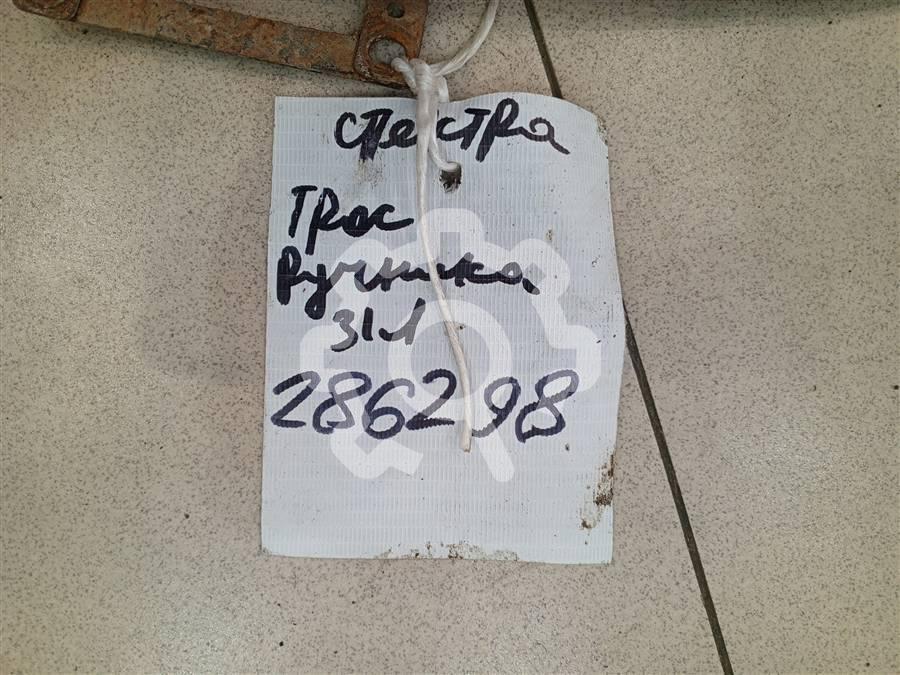 спектра
Трос
Ручника
ЗЛ
286298